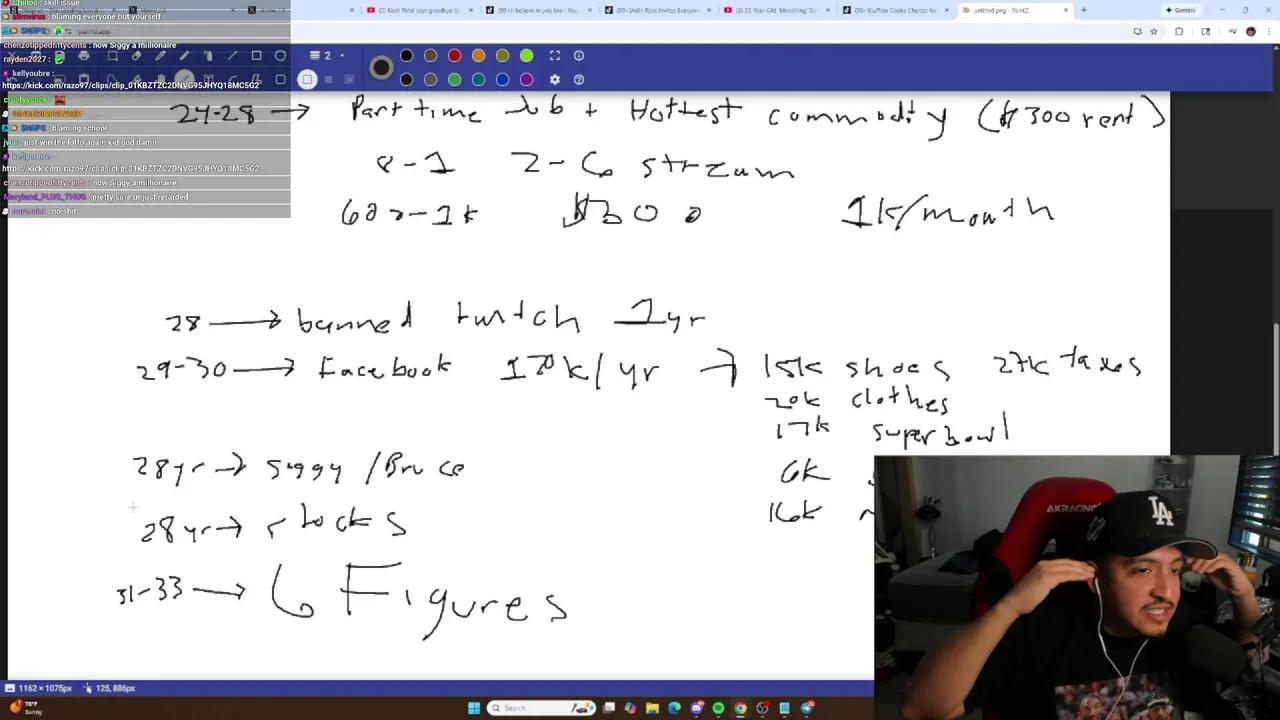 Chinos: skill issue
slimvirus: blaming everyone but yourself
SNIIPS:
chenzotippedfiftycents: now Siggy a millionaire
rayden2027:
kellyoubre:
https://kick.com/razo97/clips/clip_01KBZTZC2DNVG95JHYQ18MC5G2
crustyysock:
SNIIPS: blaming school
jwal: just win the lotto again kid god damn
kellyoubre:
https://kick.com/razo97/clips/clip_01KBZTZC2DNVG95JHYQ18MC5G2
chenzotippedfiftycents: now Siggy a millionaire
Maryland_PLUG_THUG: pretty sure ur just retarded
no shit
untitled.png - PaintZ
Gemini
2
24-28 → Part time Job + Hottest commodity ($300 rent)
8-1 2-6 stream
600-1k $300 1k/month
28 → banned twitch 1yr
29-30 → Facebook 170k/yr → 15k shoes 27k taxes
20k clothes
17k superbowl
28yr → siggy /Bruce
6k
28yr → stocks
16k
31-33 → 6 Figures
AKRACING
LA
1162 × 1075px 125, 886px
78°F
Sunny
Search